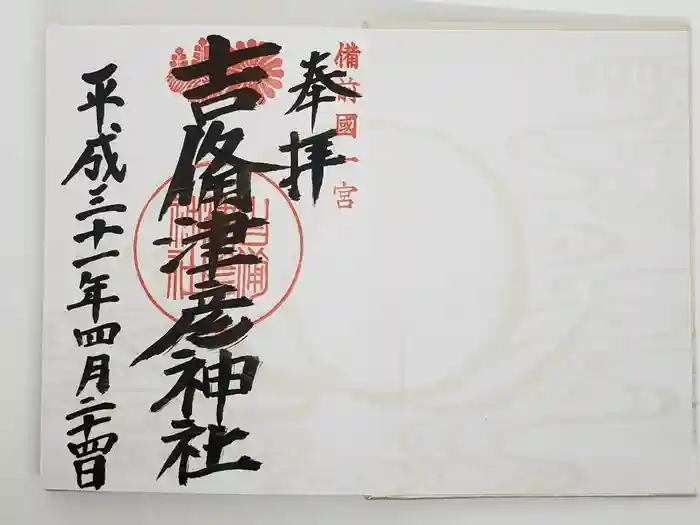 備前國一宮
奉拝
吉備津彦神社
平成三十一年四月二十四日